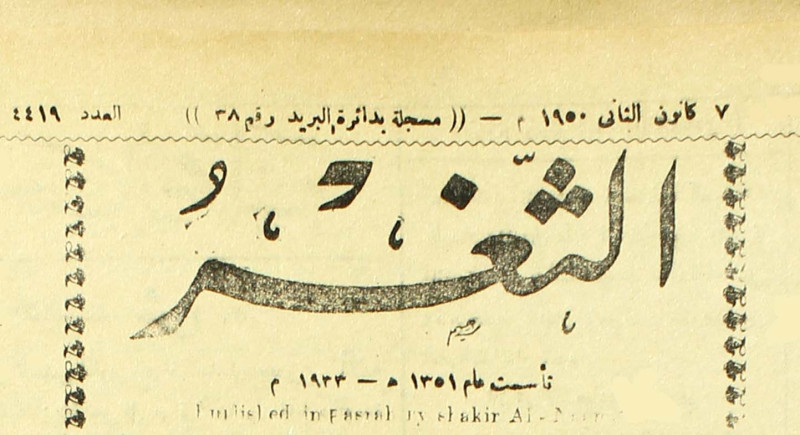 ٧ كانون الثانى ١٩٥٠ م — (( مسجلة بدائرة البريد رقم ٣٨ )) العدد ٤٤١٩
الثَّغْرُ
رحيم
تأسست عام ١٣٥١ ه — ١٩٣٣ م
Published in Basrah by shakir Al-